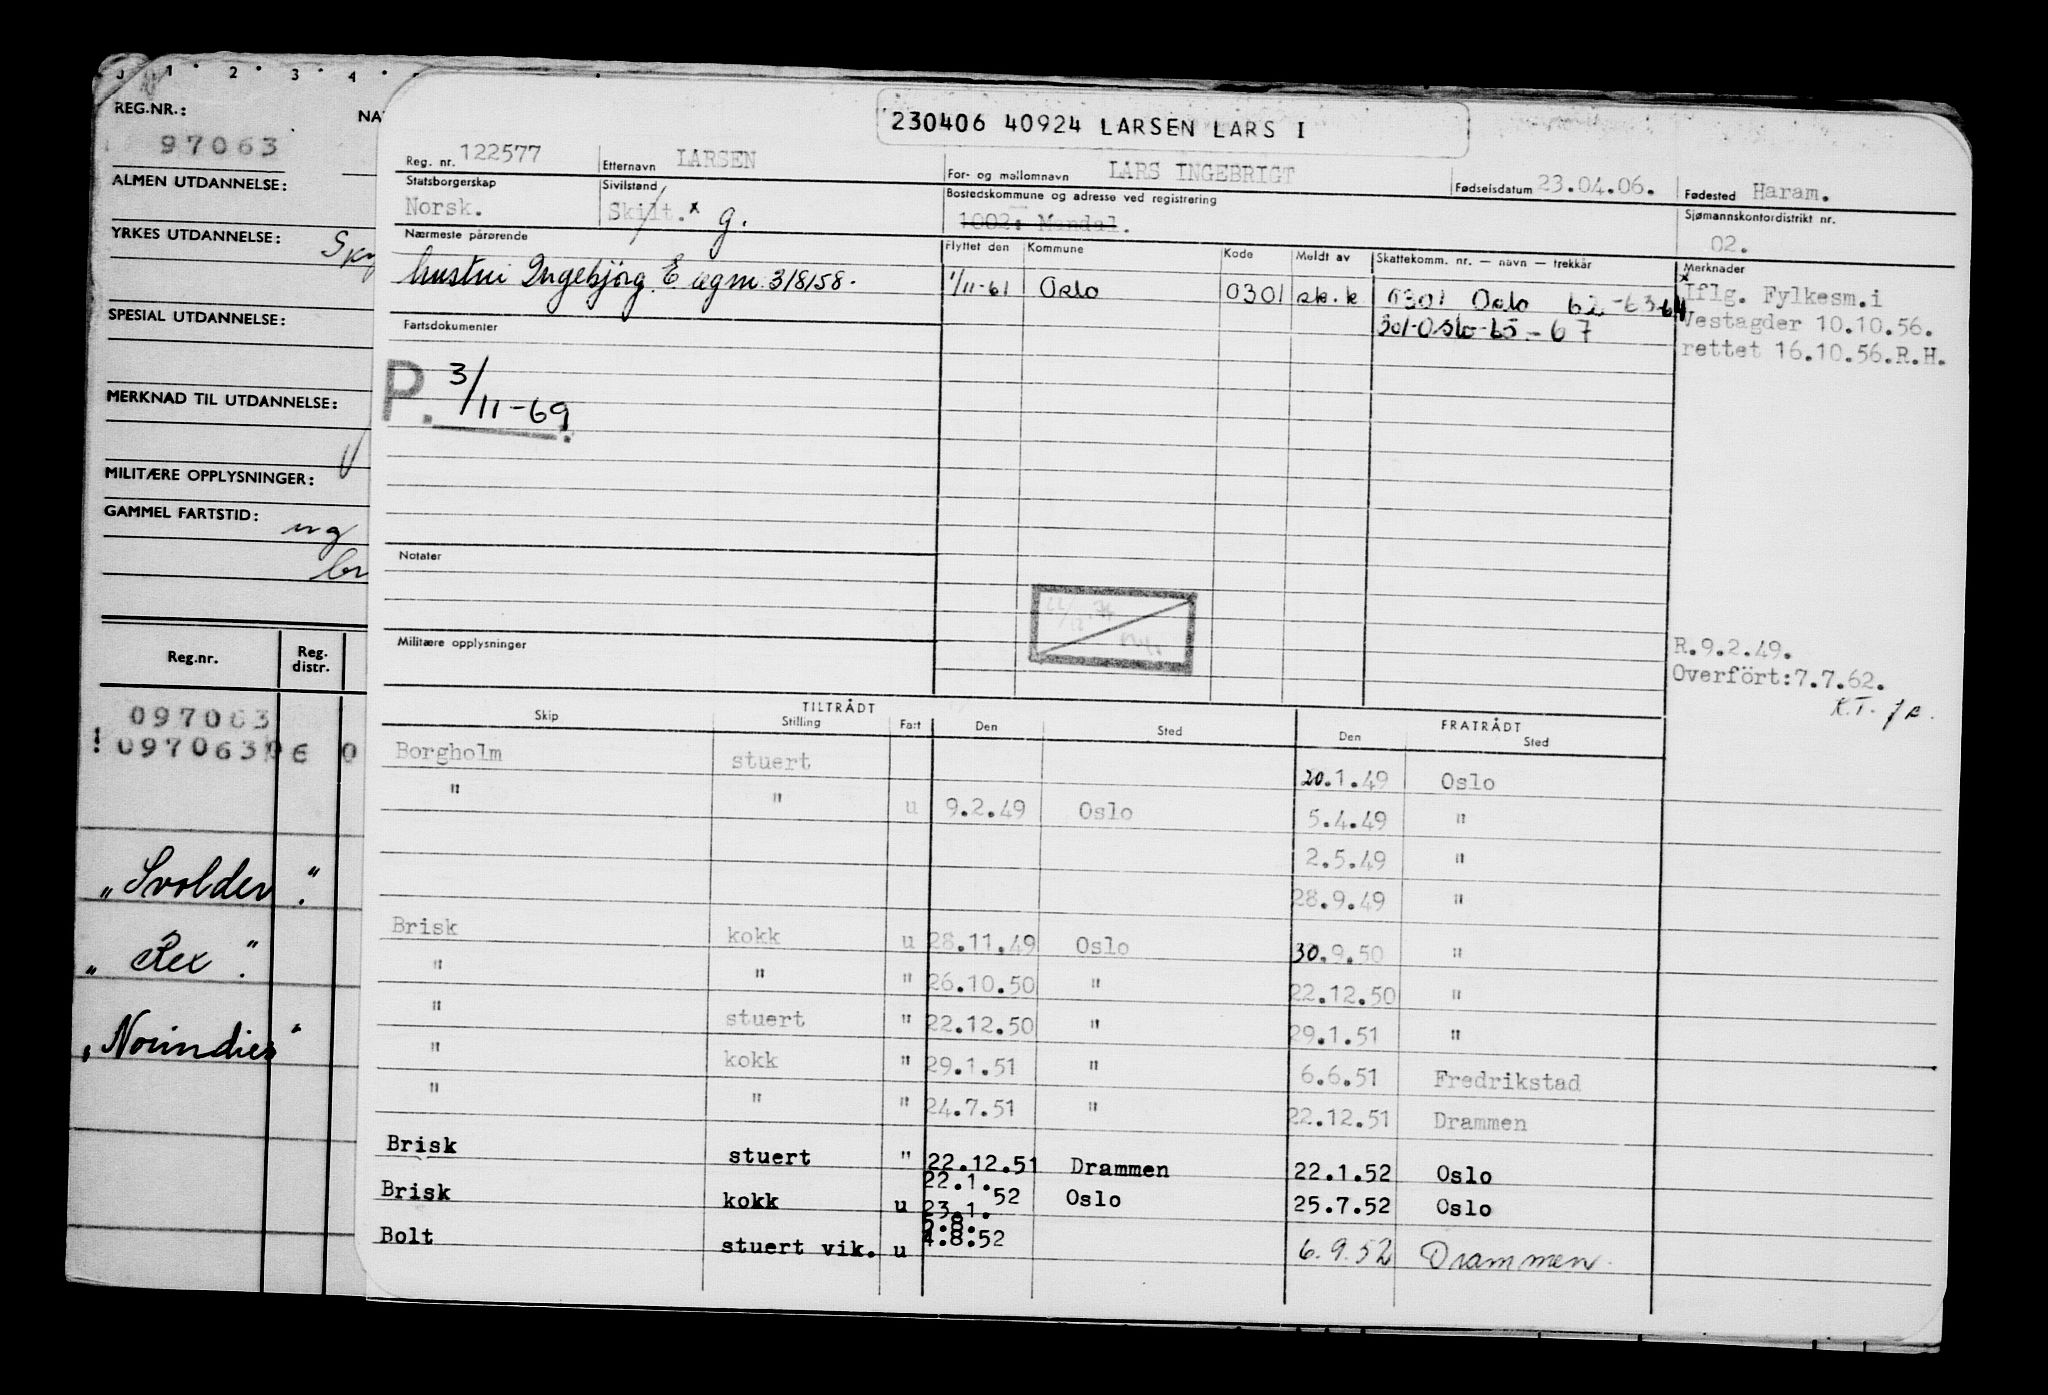 1 2 3 4
REG.NR.:
97063
ALMEN UTDANNELSE:
YRKES UTDANNELSE:
SPESIAL UTDANNELSE:
MERKNAD TIL UTDANNELSE:
MILITÆRE OPPLYSNINGER:
GAMMEL FARTSTID:
Reg.nr. Reg. distr.
097063
! 097063 06 0
„Svolder".
„Rex".
230406 40924 LARSEN LARS I
Reg. nr. 122577 Etternavn LARSEN For- og mellomnavn LARS INGEBRIGT Fødselsdatum 23.04.06. Fødested Haram.
Statsborgerskap Sivilstand Bostedskommune og adresse ved registrering Sjømannskontordistrikt nr.
Norsk. Skilt. x g. 1002: Mandal. 02.
Nærmeste pårørende Flyttet den Kommune Kode Meldt av Skattekomm. nr. — navn — trekkår Merknader
hustru Ingebjørg E. ægm. 3/8/58. 1/11-61 Oslo 0301 sk.k 0301 Oslo 62-63-64
301-Oslo-65-67
x Iflg. Fylkesm.i
Vestagder 10.10.56.
rettet 16.10.56.R.H.
Fartsdokumenter
P. 3/11-69
Notater
Militære opplysninger
R.9.2.49.
Overfört:7.7.62.
TILTRÅDT FRATRÅDT
Skip Stilling Fart Den Sted Den Sted
Borgholm stuert 20.1.49 Oslo
" " u 9.2.49 Oslo 5.4.49 "
2.5.49 "
28.9.49 "
Brisk kokk u 28.11.49 Oslo 30.9.50 "
" " " 26.10.50 " 22.12.50 "
" stuert " 22.12.50 " 29.1.51 "
" kokk " 29.1.51 " 6.6.51 Fredrikstad
" " " 24.7.51 " 22.12.51 Drammen
Brisk stuert " 22.12.51 Drammen 22.1.52 Oslo
Brisk kokk u 22.1. 23.1. 52 Oslo 25.7.52 Oslo
Bolt stuert vik. u 5.8. 4.8.52 6.9.52 Drammen